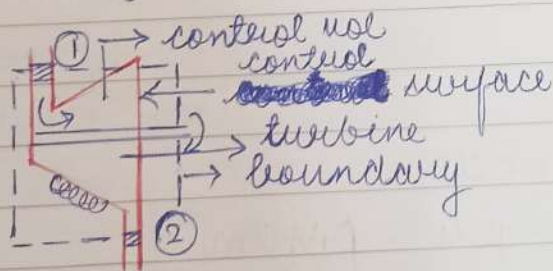 ① → control vol
control
surface
turbine
boundary
②